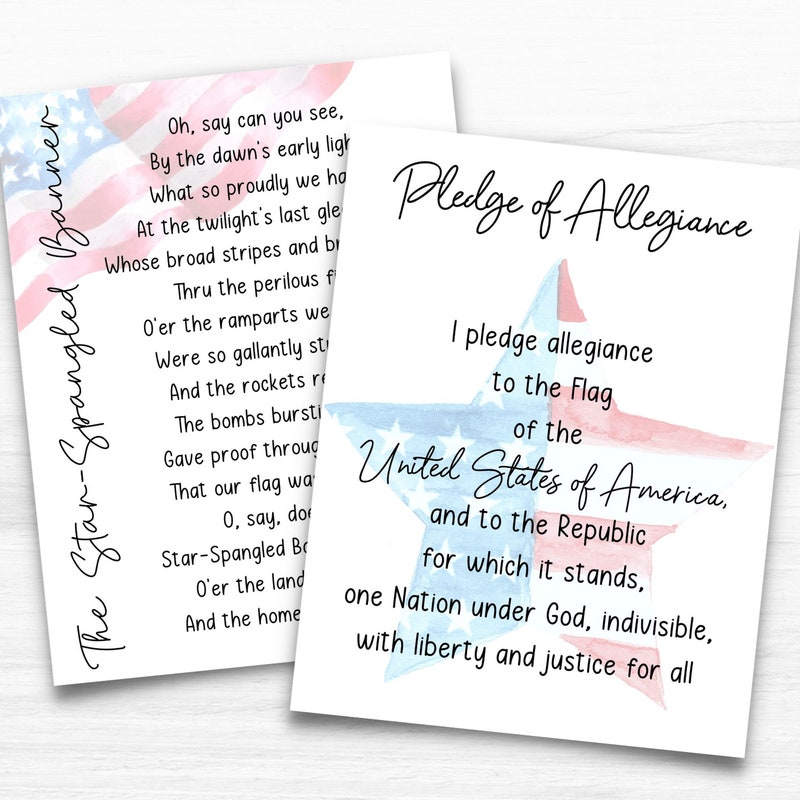 The Star-Spangled Banner
Oh, say can you see,
By the dawn's early ligh
What so proudly we ha
At the twilight's last gle
Whose broad stripes and br
Thru the perilous fi
O'er the ramparts we
Were so gallantly str
And the rockets re
The bombs bursti
Gave proof throug
That our flag was
O, say, doe
Star-Spangled Ba
O'er the land
And the home
Pledge of Allegiance
I pledge allegiance
to the Flag
of the
United States of America,
and to the Republic
for which it stands,
one Nation under God, indivisible,
with liberty and justice for all